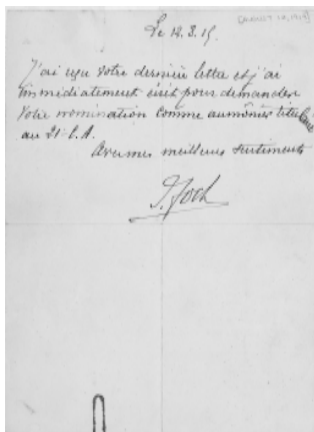 Le 12.3.15.
J'ai reçu votre dernière lettre et j'ai
immédiatement écrit pour demander
votre nomination comme aumônier titulaire
au 21e C.A.
Avec mes meilleurs sentiments
F. Foch